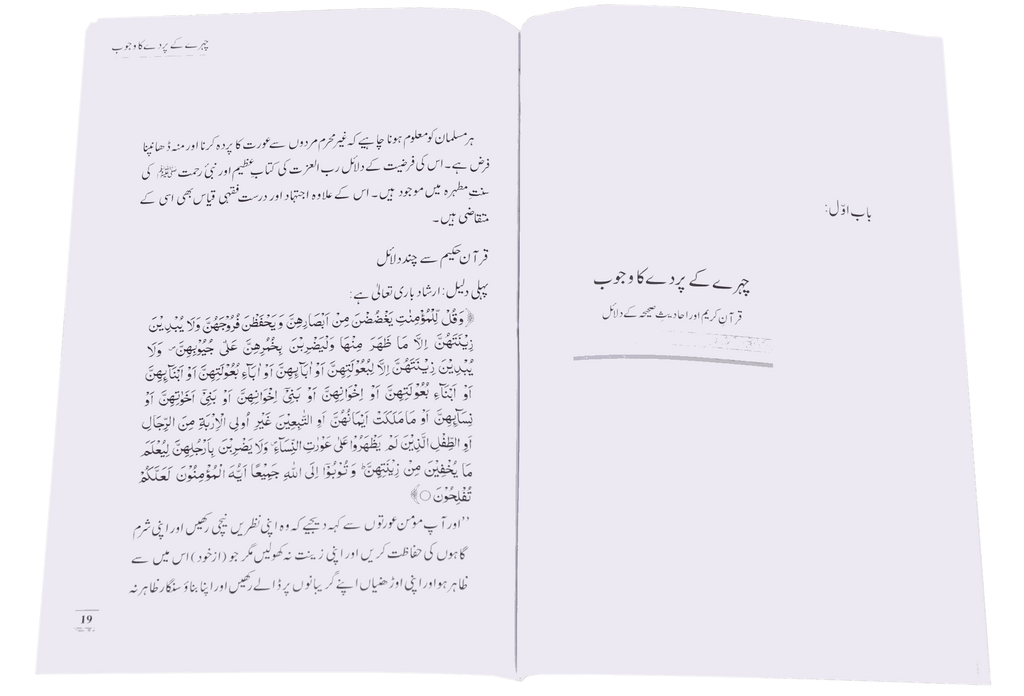 باب اوّل:
چہرے کے پردے کا وجوب
قرآن کریم اور احادیثِ صحیحہ کے دلائل
چہرے کے پردے کا وجوب
ہر مسلمان کو معلوم ہونا چاہیے کہ غیر محرم مردوں سے عورت کا پردہ کرنا اور منہ ڈھانپنا
فرض ہے۔ اس کی فرضیت کے دلائل رب العزت کی کتابِ عظیم اور نبیٔ رحمت ﷺ کی
سنتِ مطہرہ میں موجود ہیں۔ اس کے علاوہ اجتہاد اور درست فقہی قیاس بھی اسی کے
متقاضی ہیں۔
قرآن حکیم سے چند دلائل
پہلی دلیل: ارشاد باری تعالیٰ ہے:
﴿وَقُلْ لِّلْمُؤْمِنٰتِ يَغْضُضْنَ مِنْ اَبْصَارِهِنَّ وَيَحْفَظْنَ فُرُوْجَهُنَّ وَلَا يُبْدِيْنَ
زِيْنَتَهُنَّ اِلَّا مَا ظَهَرَ مِنْهَا وَلْيَضْرِبْنَ بِخُمُرِهِنَّ عَلٰى جُيُوْبِهِنَّ ۪ وَلَا
يُبْدِيْنَ زِيْنَتَهُنَّ اِلَّا لِبُعُوْلَتِهِنَّ اَوْ اٰبَآئِهِنَّ اَوْ اٰبَآءِ بُعُوْلَتِهِنَّ اَوْ اَبْنَآئِهِنَّ
اَوْ اَبْنَآءِ بُعُوْلَتِهِنَّ اَوْ اِخْوَانِهِنَّ اَوْ بَنِيْٓ اِخْوَانِهِنَّ اَوْ بَنِيْٓ اَخَوٰتِهِنَّ اَوْ
نِسَآئِهِنَّ اَوْ مَا مَلَكَتْ اَيْمَانُهُنَّ اَوِ التّٰبِعِيْنَ غَيْرِ اُولِي الْاِرْبَةِ مِنَ الرِّجَالِ
اَوِ الطِّفْلِ الَّذِيْنَ لَمْ يَظْهَرُوْا عَلٰى عَوْرٰتِ النِّسَآءِ ۪ وَلَا يَضْرِبْنَ بِاَرْجُلِهِنَّ لِيُعْلَمَ
مَا يُخْفِيْنَ مِنْ زِيْنَتِهِنَّ ؕ وَتُوْبُوْٓا اِلَى اللّٰهِ جَمِيْعًا اَيُّهَ الْمُؤْمِنُوْنَ لَعَلَّكُمْ
تُفْلِحُوْنَ ○﴾
’’اور آپ مؤمن عورتوں سے کہہ دیجیے کہ وہ اپنی نظریں نیچی رکھیں اور اپنی شرم
گاہوں کی حفاظت کریں اور اپنی زینت نہ کھولیں مگر جو (ازخود) اس میں سے
ظاہر ہو اور اپنی اوڑھنیاں اپنے گریبانوں پر ڈالے رکھیں اور اپنا بناؤ سنگار ظاہر نہ
19